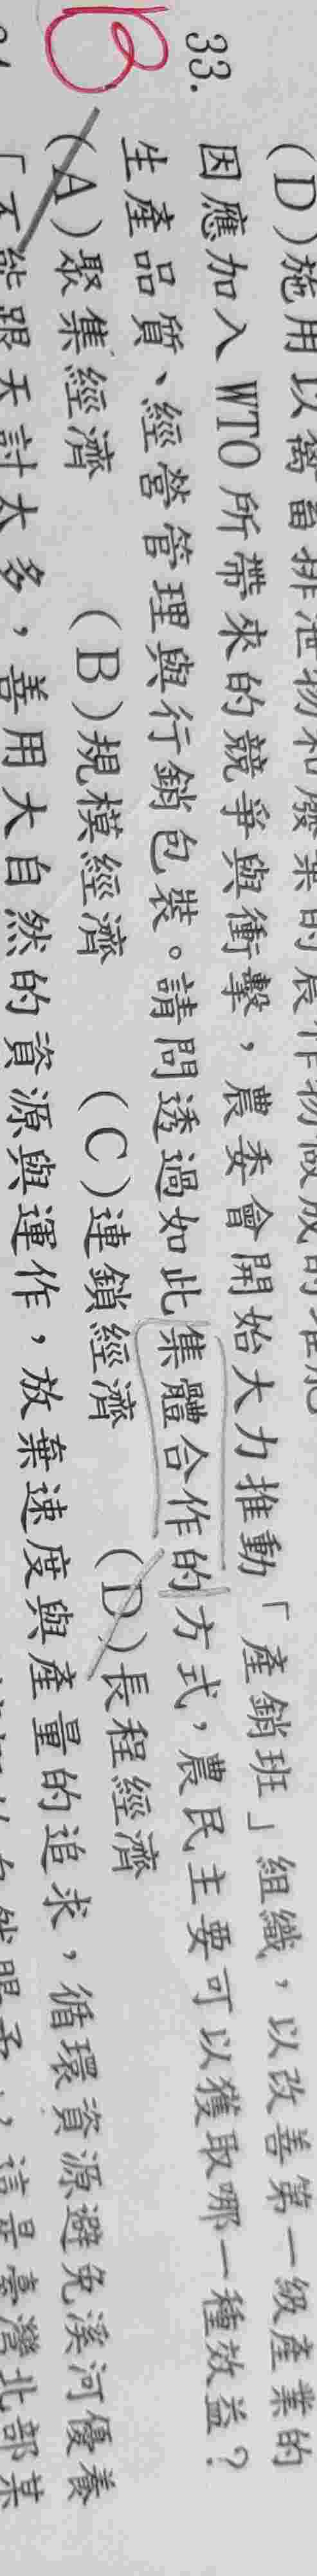 (D)施用以禽畜排泄物和廢棄的農作物做成的堆肥
33. 因應加入 WTO 所帶來的競爭與衝擊，農委會開始大力推動「產銷班」組織，以改善第一級產業的
生產品質、經營管理與行銷包裝。請問透過如此集體合作的方式，農民主要可以獲取哪一種效益？
B (A)聚集經濟 (B)規模經濟 (C)連鎖經濟 (D)長程經濟
「不能跟天討太多，善用大自然的資源與運作，放棄速度與產量的追求，循環資源避免溪河優養
這是臺灣北部某